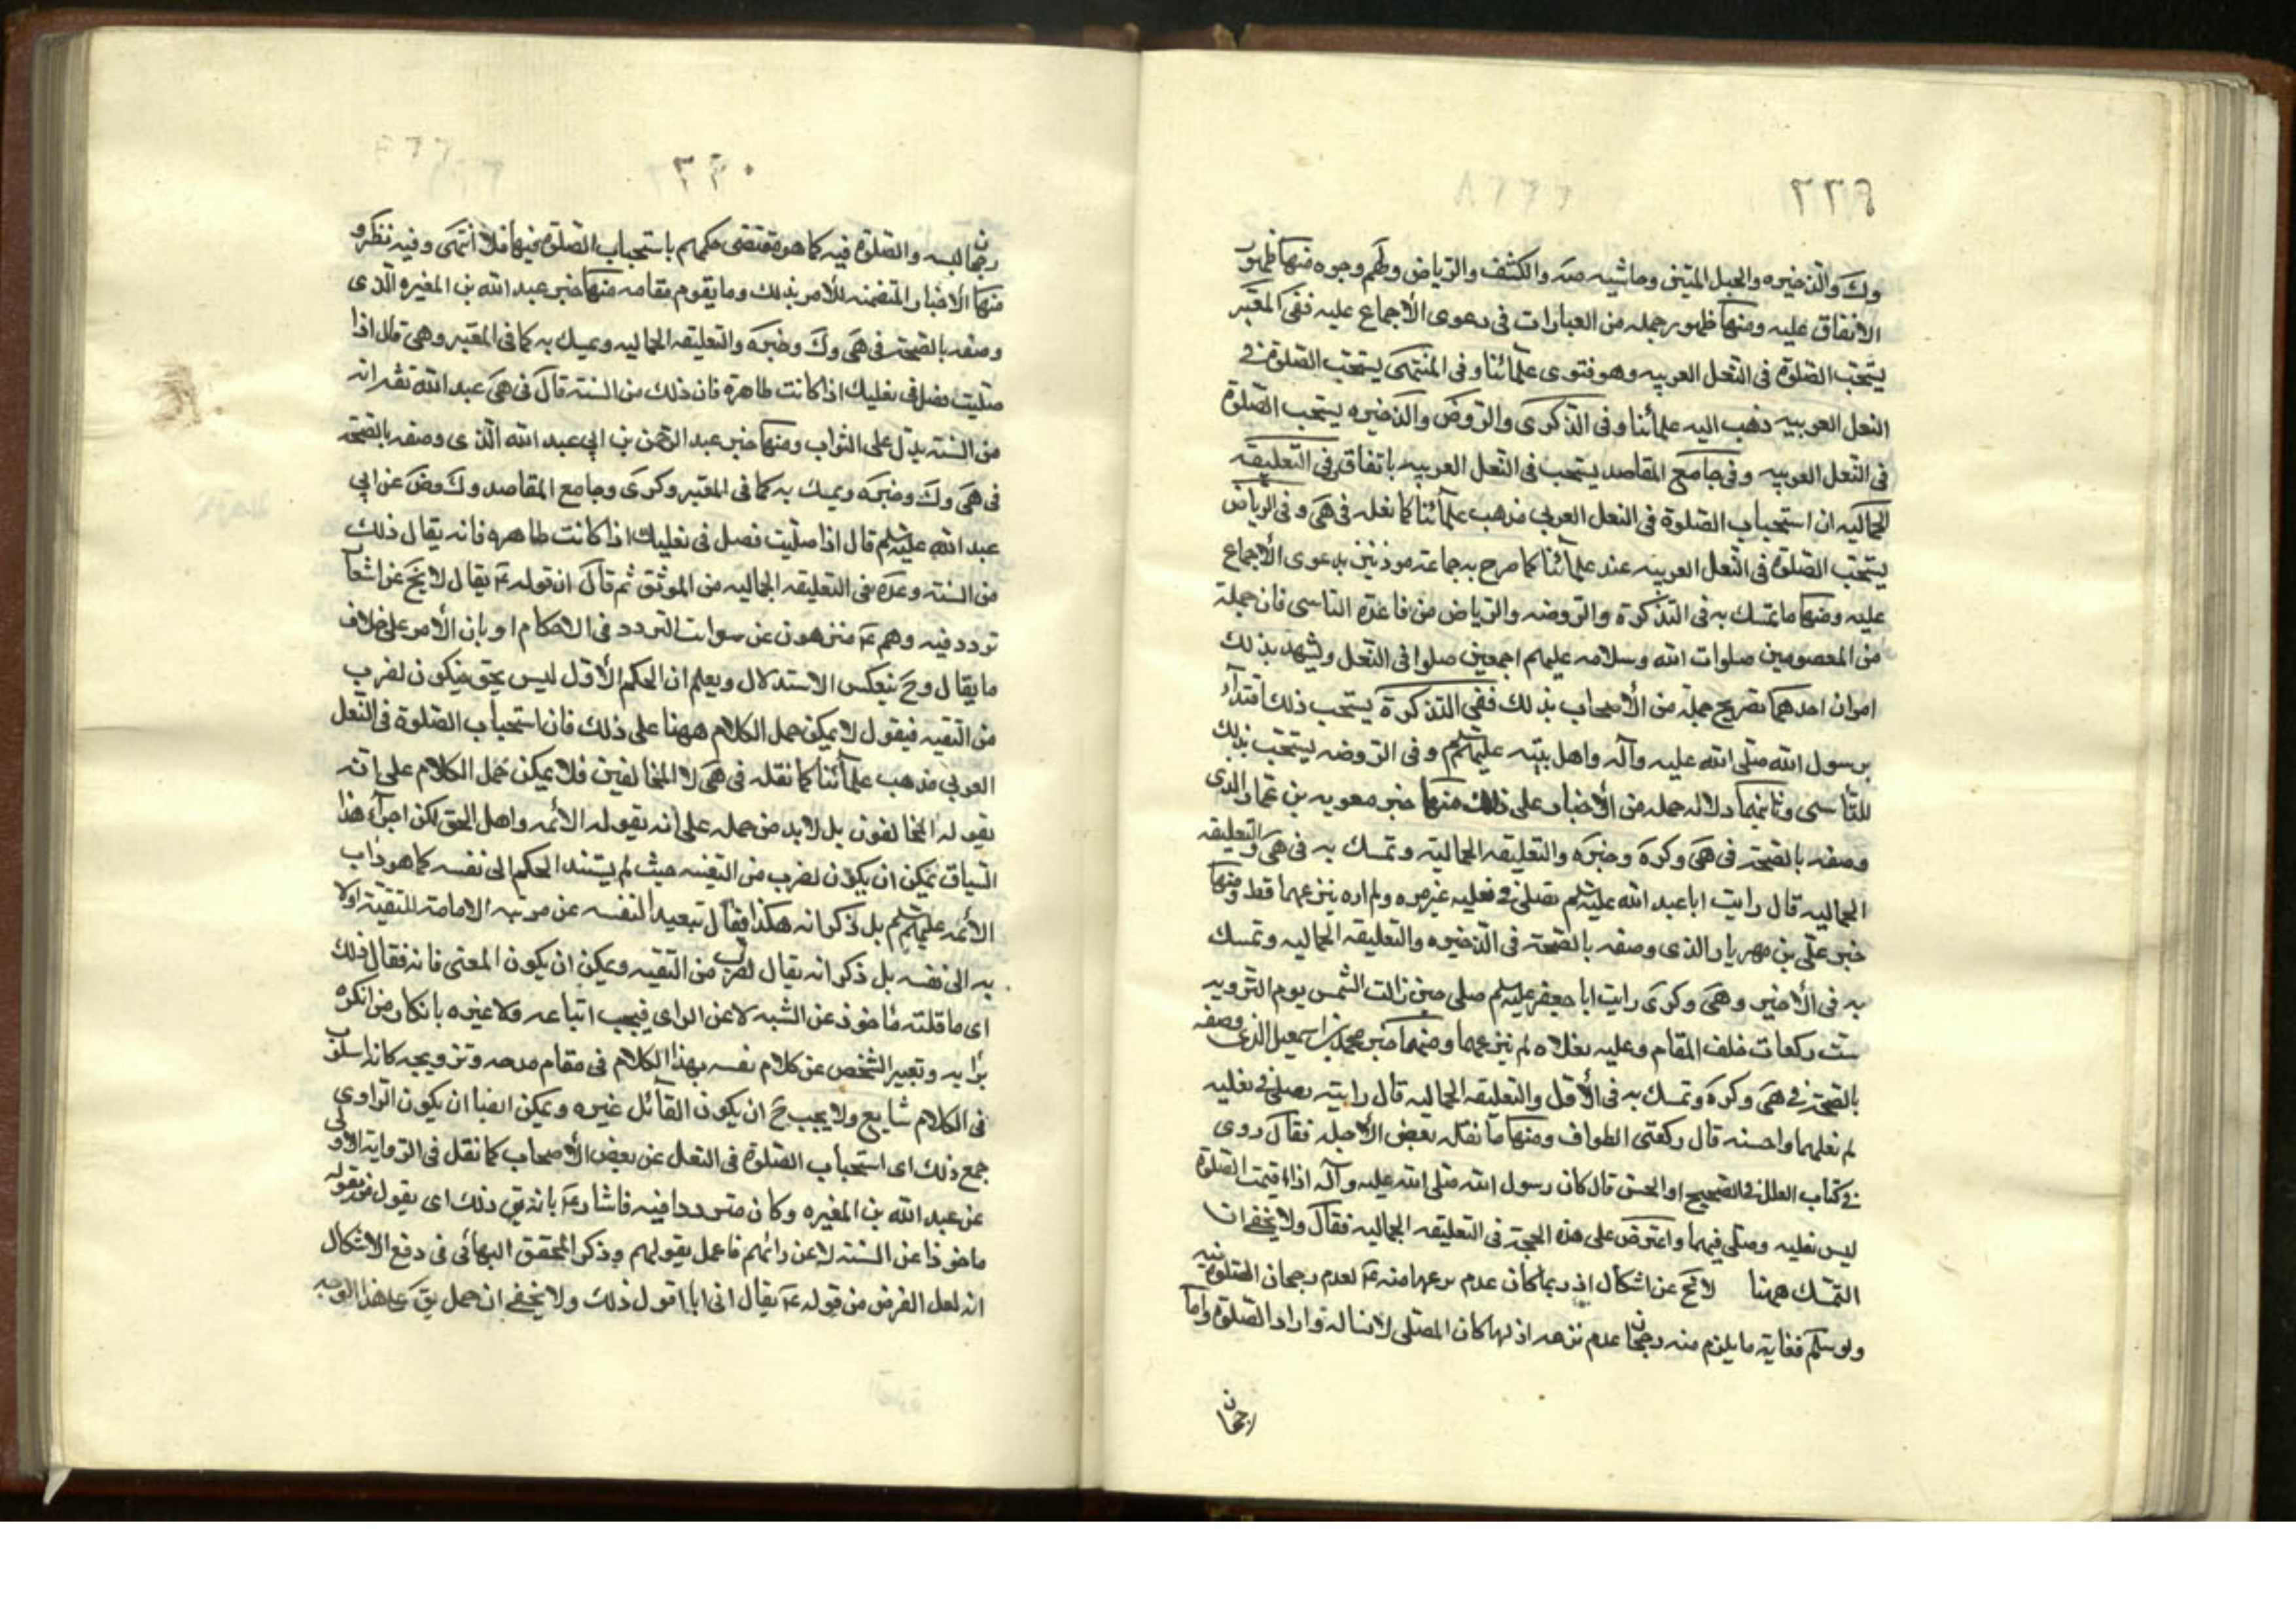 ٢٢٩
وك والذخيره والحبل المتين وحاشيه منه والكشف والرياض ولهم وجوه منها ظهور
الاتفاق عليه ومنها ظهور جمله من العبارات فى دعوى الأجماع عليه ففى المعتبر
يستحب الصلوة فى النعل العربيه وهو فتوى علمائنا وفى المنتهى يستحب الصلوة فى
النعل العربيه ذهب اليه علمائنا وفى الذكرى والروض والذخيره يستحب الصلوة
فى النعل العربيه وفى جامع المقاصد يستحب فى النعل العربيه باتفاق وفى التعليقه
الجماليه ان استحباب الصلوة فى النعل العربى مذهب علمائنا كما نقله فى هى وفى الرياض
يستحب الصلوة فى النعل العربيه عند علمائنا كما صرح به جماعة موذنين بدعوى الأجماع
عليه ومنها ما تمسك به فى التذكرة والروضه والرياض من قاعدة التاسى فان جملة
من المعصومين صلوات الله وسلامه عليهم اجمعين صلوا فى النعل ويشهد بذلك
امران احدهما تصريح جملة من الأصحاب بذلك ففى التذكرة يستحب ذلك اقتدآء
برسول الله صلى الله عليه وآله واهل بيته عليهم السلم وفى الروضه يستحب ذلك
للتاسى وثانيهما دلاله جمله من الأخبار على ذلك منها خبر معويه بن عمار الذى
وصفه بالصحة فى هى وكره وخيره والتعليقه الجماليه وتمسك به فى هى والتعليقه
الجماليه قال رايت ابا عبد الله عليه السلم يصلى فى نعليه غير مره ولم اره ينزعهما قط ومنها
خبر على بن مهريار الذى وصفه بالصحة فى الذخيره والتعليقه الجماليه وتمسك
به فى الأخير وهى وكرى رايت ابا جعفر عليه السلم صلى حين زالت الشمس يوم الترويه
ست ركعات خلف المقام وعليه نعلاه لم ينزعهما ومنها خبر محمد بن اسمعيل الذى وصفه
بالصحة فى هى وكره وتمسك به فى الأول والتعليقه الجماليه قال رايته يصلى فى نعليه
لم يخلعهما واحسنه قال ركعتى الطواف ومنها ما نقله بعض الأجله فقال روى
فى كتاب العلل فى الصحيح او الحسن قال كان رسول الله صلى الله عليه وآله اذا اقيمت الصلوة
لبس نعليه وصلى فيهما واعترض على هذه الحجة فى التعليقه الجماليه فقال ولا يخفى ان
التمسك ههنا لا يخ عن اشكال اذ ربما كان عدم نزعهما منه ع لعدم رجحان الصلوة فيه
ولو سلم فغاية ما يلزم منه رجحان عدم نزعه اذ لها كان المصلى لابسا له واراد الصلوة واما
رجحان
٢٣٠
رجحان لبسه والصلوة فيه كما هو مقتضى حكمهم باستحباب الصلوة فيها فلا انتهى وفيه نظر و
منها الأخبار المتضمنه للأمر بذلك وما يقوم مقامه منها خبر عبد الله بن المغيره الذى
وصفه بالصحة فى هى وك وخيره والتعليقه الجماليه وتمسك به كما فى المعتبر وهى قال اذا
صليت فصل فى نعليك اذا كانت طاهرة فان ذلك من السنة قال فى هى عبد الله ثقه انه
من السنة يدل على الثواب ومنها خبر عبد الرحمن بن ابى عبد الله الذى وصفه بالصحة
فى هى وك وخيره وتمسك به كما فى المعتبر وكرى وجامع المقاصد وك وض عن ابى
عبد الله عليه السلم قال اذا صليت فصل فى نعليك اذا كانت طاهره فانه يقال ذلك
من السنة وعده فى التعليقه الجماليه من الموثق ثم قال ان قوله ع يقال لا يخ عن اشعار
تردد فيه وهم ع منزهون عن سوانت التردد فى الاحكام او بان الأمر على خلاف
ما يقال وح ينعكس الاستدلال ويعلم ان الحكم الأول ليس بحق فيكون لضرب
من التقيه فيقول لا يمكن حمل الكلام ههنا على ذلك فان استحباب الصلوة فى النعل
العربى مذهب علمائنا كما نقله فى هى لا المخالفين فلا يمكن حمل الكلام على انه
يقوله المخالفون بل لابد من حمله على انه يقوله الأئمه واهل الحق لكن اجرآء هذا
السياق يمكن ان يكون لضرب من التقيه حيث لم يستند الحكم الى نفسه كما هو داب
الأئمه عليهم السلم بل ذكر انه هكذا يقال تبعيدا لنفسه عن مرتبه الامامة للتقية اولا
به الى نفسه بل ذكر انه يقال لضرب من التقيه ويمكن ان يكون المعنى فانه فقال ذلك
اى ما قلته ماخوذ عن الشبه لا عن الراى فيجب اتباعه ولا غيره بانكار من انكره
برايه وتعبير الشخص عن كلام نفسه بهذا الكلام فى مقام مدحه وترويجه كانه اسلوب
فى الكلام شايع ولا يجب ح ان يكون القائل غيره ويمكن ايضا ان يكون الراوى
جمع ذلك اى استحباب الصلوة فى النعل عن بعض الأصحاب كما نقل فى الرواية الاولى
عن عبد الله بن المغيره وكان مترددا فيه فاشار ع بانه يق ذلك اى يقول من يقوله
ماخوذا عن السنة لا عن رائهم فاعمل بقولهم وذكر المحقق البهائى فى دفع الاشكال
انه لعل الغرض من قوله ع يقال انى ابا اقول ذلك ولا يخفى ان حمل يق على هذا الوجه